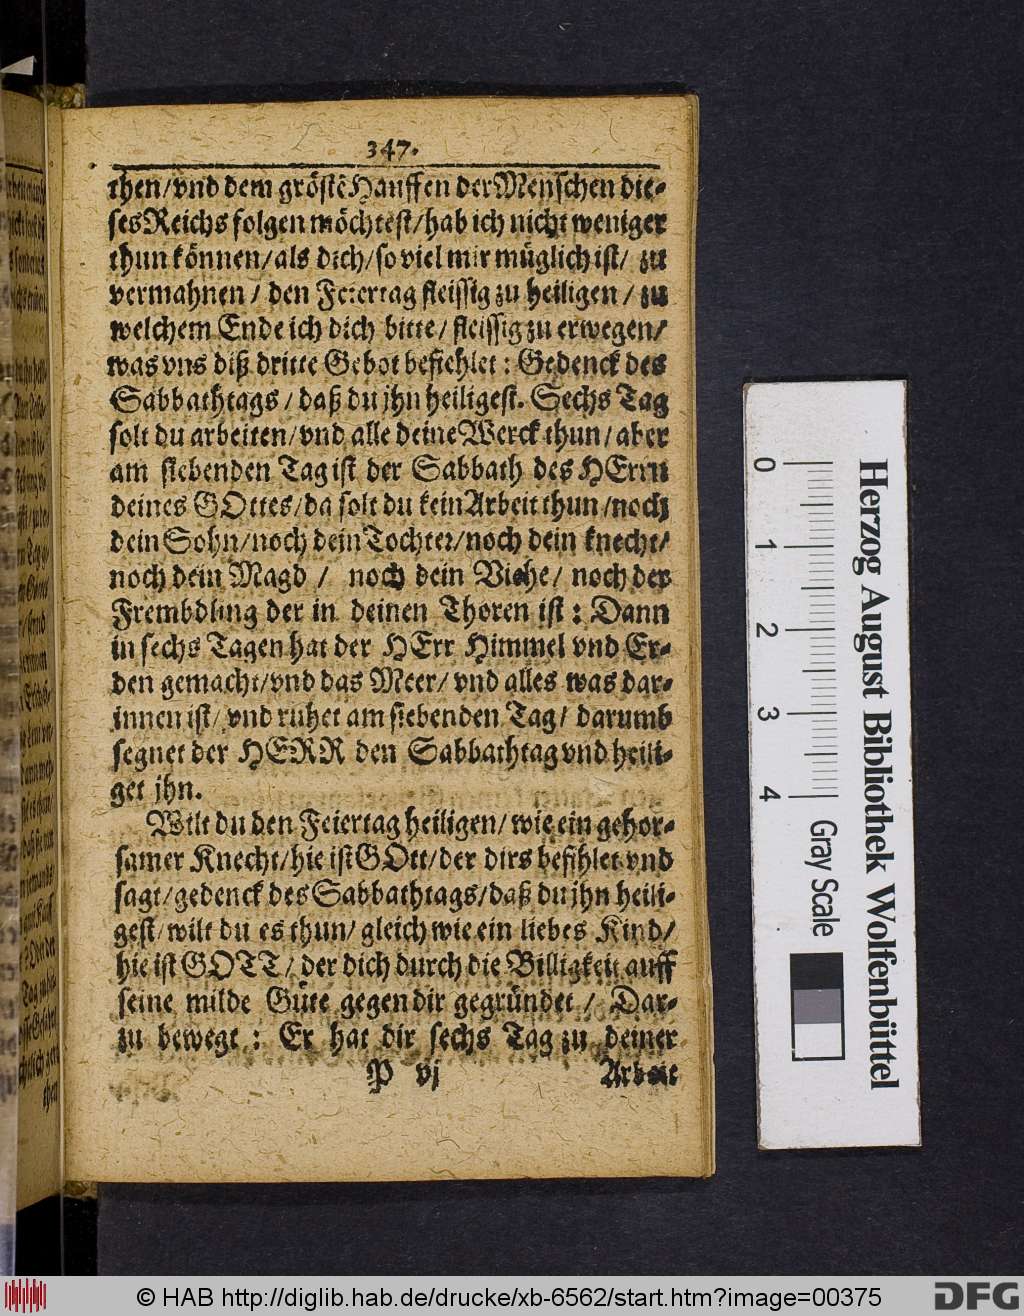 347.
then/vnd dem gröstē Hauffen der Menschen die-
ses Reichs folgen möchtest/hab ich nicht weniger
thun können/als dich/so viel mir müglich ist/ zu
vermahnen/ den Feiertag fleissig zu heiligen/ zu
welchem Ende ich dich bitte/ fleissig zu erwegen/
was vns diß dritte Gebot befiehlet: Gedenck des
Sabbathtags/ daß du jhn heiligest. Sechs Tag
solt du arbeiten/vnd alle deine Werck thun/aber
am siebenden Tag ist der Sabbath des HErrn
deines GOttes/da solt du kein Arbeit thun/noch
dein Sohn/noch dein Tochter/noch dein knecht/
noch dein Magd/ noch dein Viehe/ noch der
Frembdling der in deinen Thoren ist: Dann
in sechs Tagen hat der HErr Himmel vnd Er-
den gemacht/vnd das Meer/ vnd alles was dar-
innen ist/ vnd ruhet am siebenden Tag/ darumb
segnet der HERR den Sabbathtag vnd heili-
get jhn.
Wilt du den Feiertag heiligen/ wie ein gehor-
samer Knecht/hie ist GOtt/der dirs befihlet vnd
sagt/gedenck des Sabbathtags/daß du jhn heili-
gest/wilt du es thun/ gleich wie ein liebes Kind/
hie ist GOTT/ der dich durch die Billigkeit auff
seine milde Güte gegen dir gegründet/ Dar-
zu bewegt: Er hat dir sechs Tag zu deiner
P vj Arbeit
0 1 2 3 4 Gray Scale
Herzog August Bibliothek Wolfenbüttel
© HAB http://diglib.hab.de/drucke/xb-6562/start.htm?image=00375
DFG